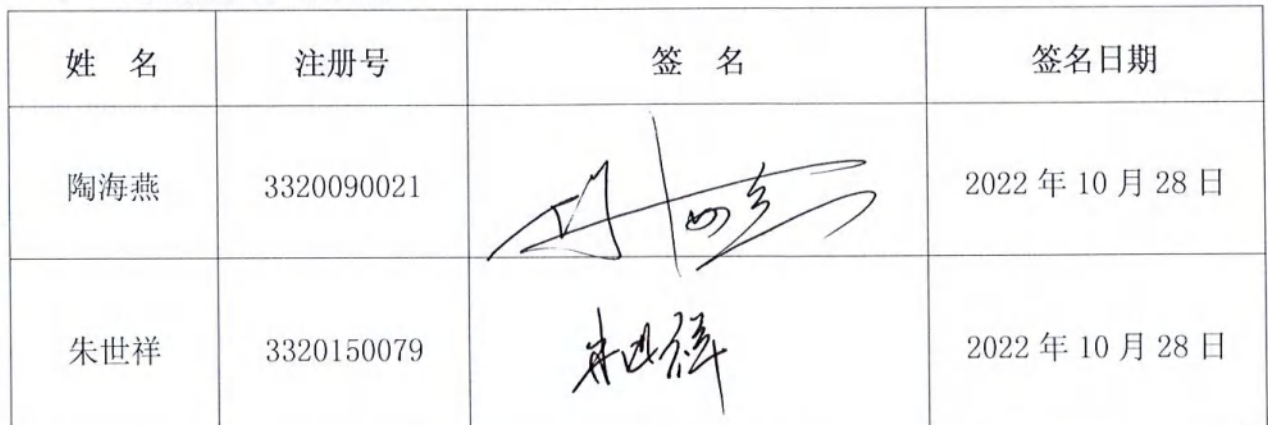 姓 名 注册号 签 名 签名日期
陶海燕 3320090021 2022年10月28日
朱世祥 3320150079 朱世祥 2022年10月28日